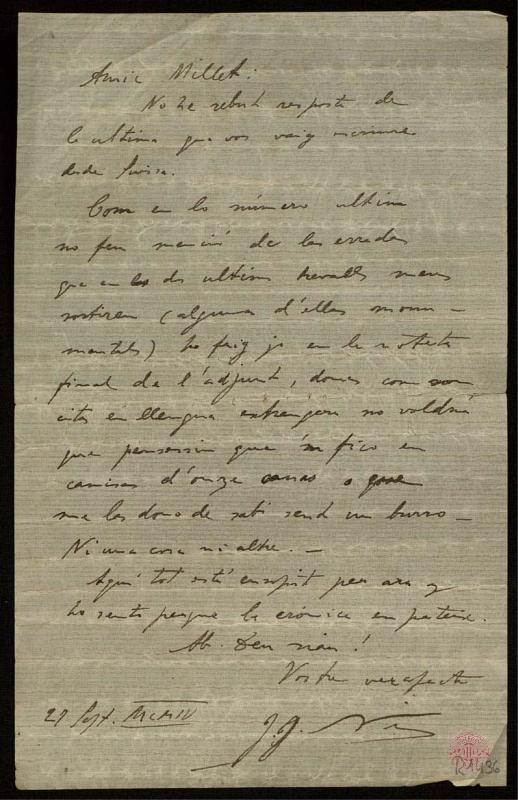 Amic Millet:
No he rebut resposta de
la ultima que vos vaig escriure
desde Suissa.
Com en lo número ultim
no feu menció de las erradas
que en los dos ultims travalls meus
sortiren (alguna d'ellas monu-
mentals) ho faig jo en la noteta
final de l'adjunt, donas com son
citas en llengua extrangera no voldria
que pensessin que 'm fico en
camisas d'onze varas o que
me las dono de sabi send un burro -
Ni una cosa ni altre. -
Aquí tot está ensopit per ara y
ho sento perque la crónica em pateix.
Ab Deu siau!
Vostre
29 Sept. MCMIV
J. G.
R.1496